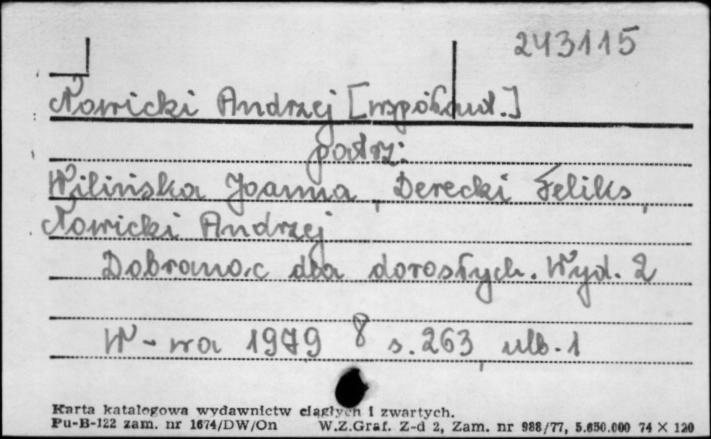 243115
Nowicki Andrzej [współaut.]
patrz:
Wilińska Joanna, Derecki Feliks,
Nowicki Andrzej
Dobranoc dla dorosłych. Wyd. 2
W-wa 1979 8 s. 263, ulb. 1
Karta katalogowa wydawnictw ciągłych i zwartych.
Pu-B-122 zam. nr 1674/DW/On W.Z.Graf. Z-d 2, Zam. nr 988/77, 5.650.000 74 X 120